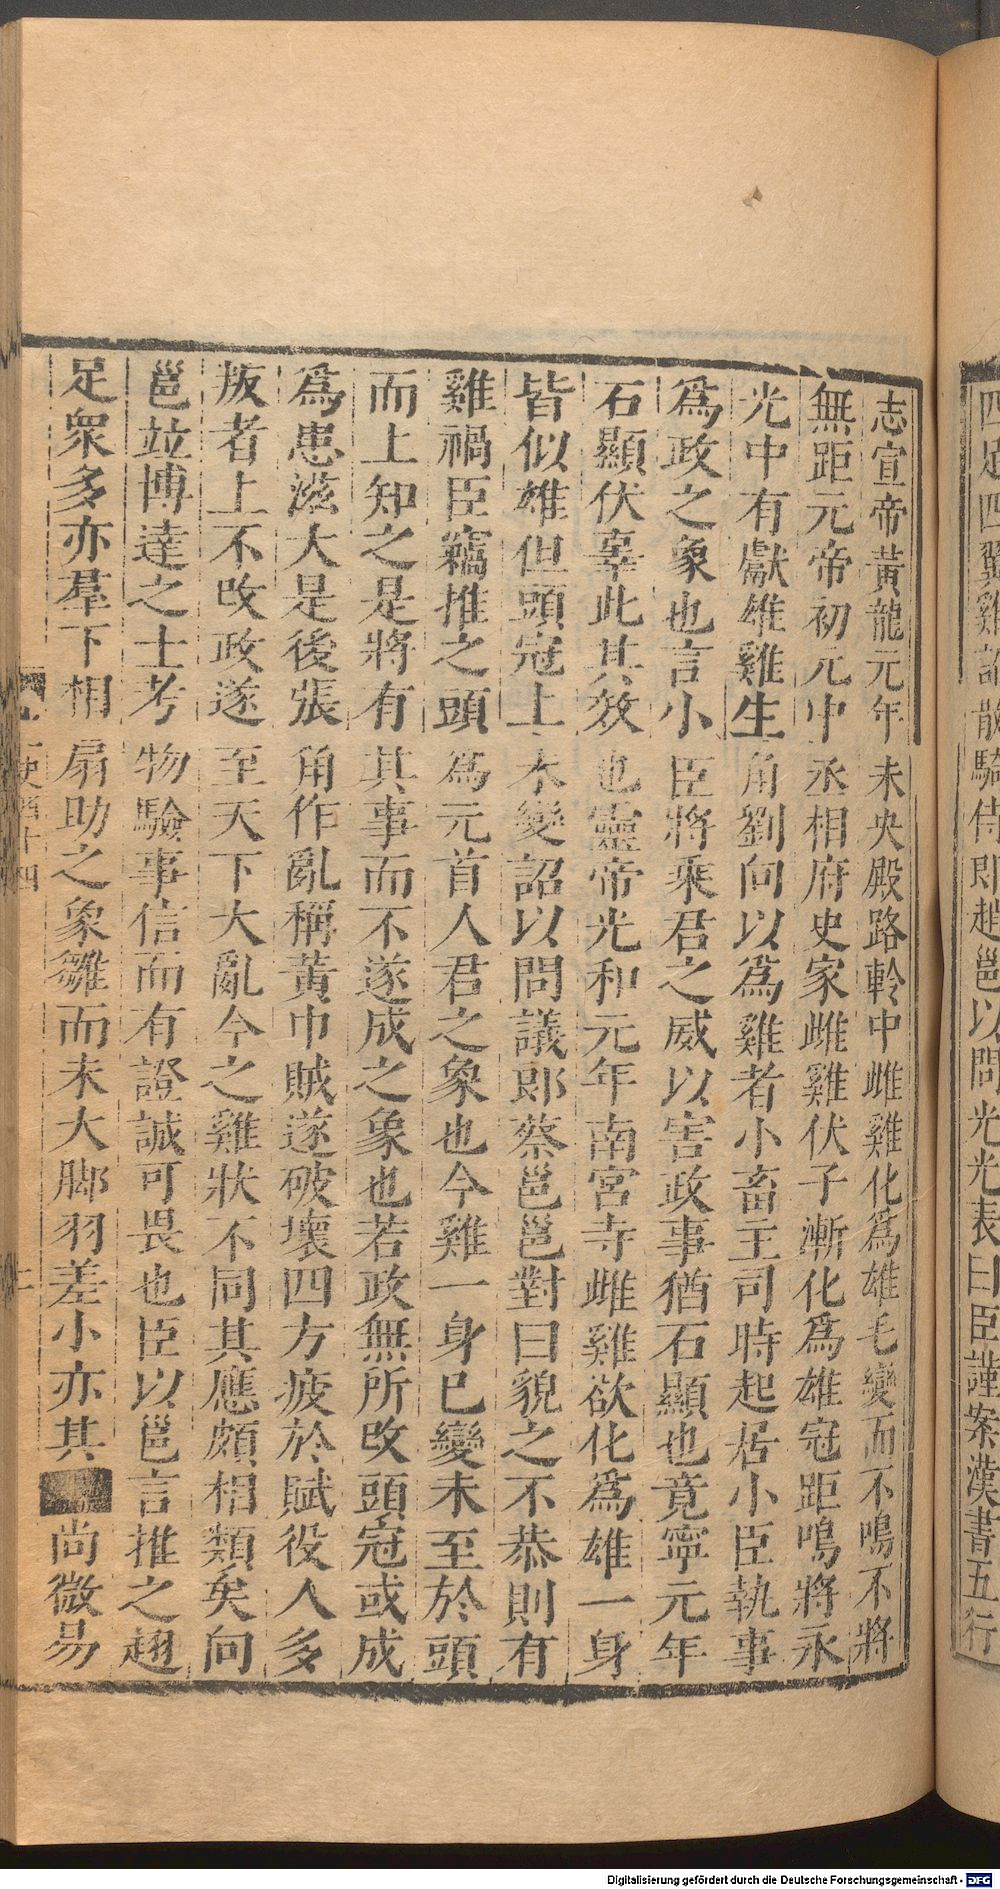 四足四翼雞詔散騎侍郎趙邕以問光光表曰臣謹案漢書五行
志宣帝黃龍元年未央殿路軨中雌雞化為雄毛變而不鳴不將
無距元帝初元中丞相府史家雌雞伏子漸化為雄冠距鳴將永
光中有獻雄雞生角劉向以為雞者小畜主司時起居小臣執事
為政之象也言小臣將乘君之威以害政事猶石顯也竟寧元年
石顯伏辜此其效也靈帝光和元年南宮寺雌雞欲化為雄一身
皆似雄但頭冠上未變詔以問議郎蔡邕邕對曰貌之不恭則有
雞禍臣竊推之頭為元首人君之象也今雞一身已變未至於頭
而上知之是將有其事而不遂成之象也若政無所改頭冠或成
為患滋大是後張角作亂稱黃巾賊遂破壞四方疲於賦役人多
叛者上不改政遂至天下大亂今之雞狀不同其應頗相類矣向
邕竝博達之士考物驗事信而有證誠可畏也臣以邕言推之翅
足眾多亦羣下相扇助之象雛而未大脚羽差小亦其尚微易
史四十四
二
Digitalisierung gefördert durch die Deutsche Forschungsgemeinschaft - DFG